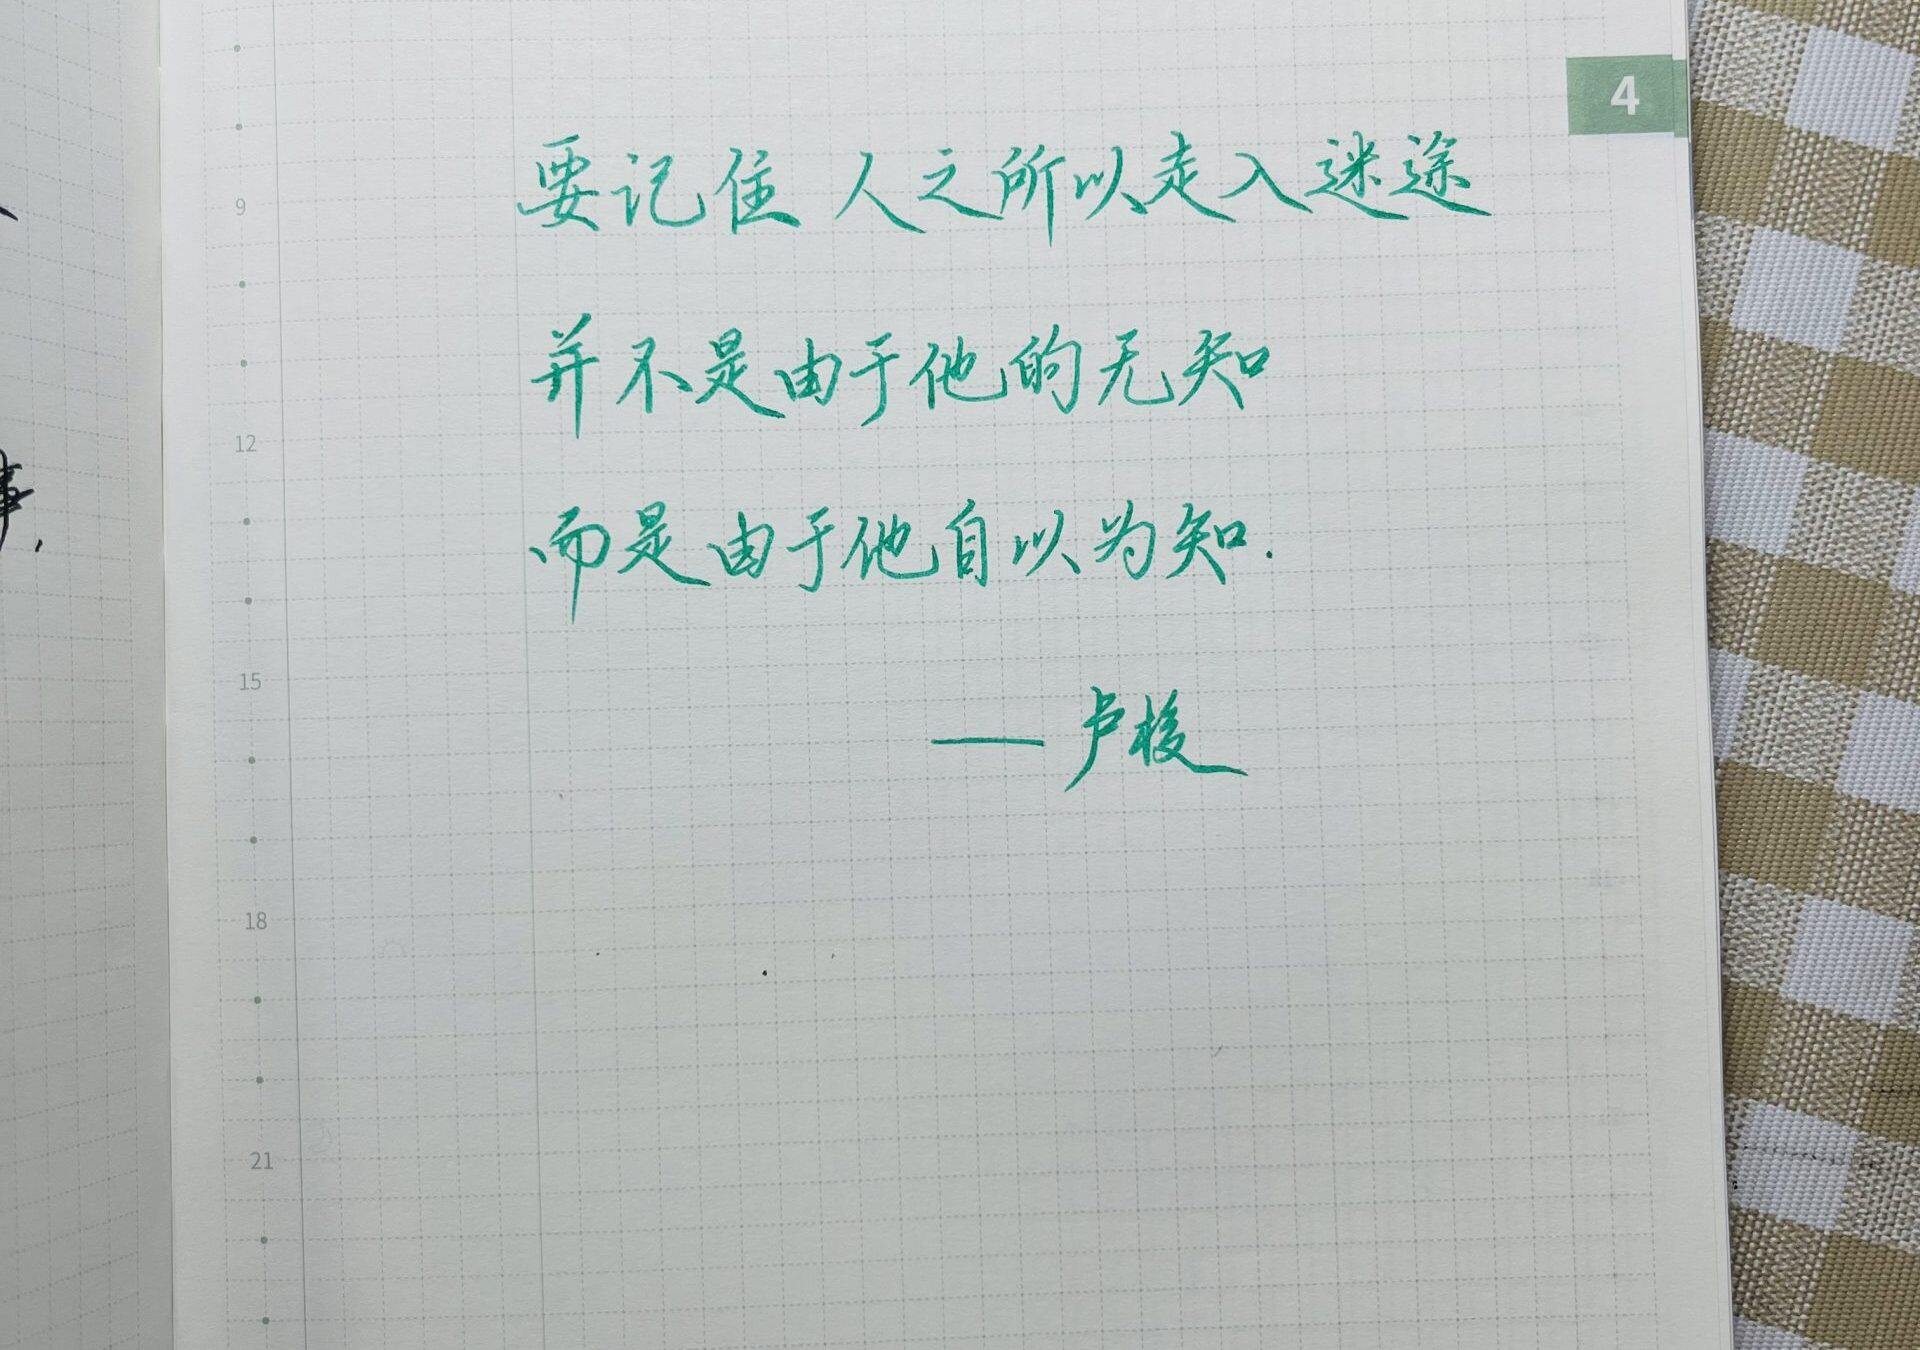 4
要记住 人之所以走入迷途
9
并不是由于他的无知
12
而是由于他自以为知.
事,
15
——卢梭
18
21